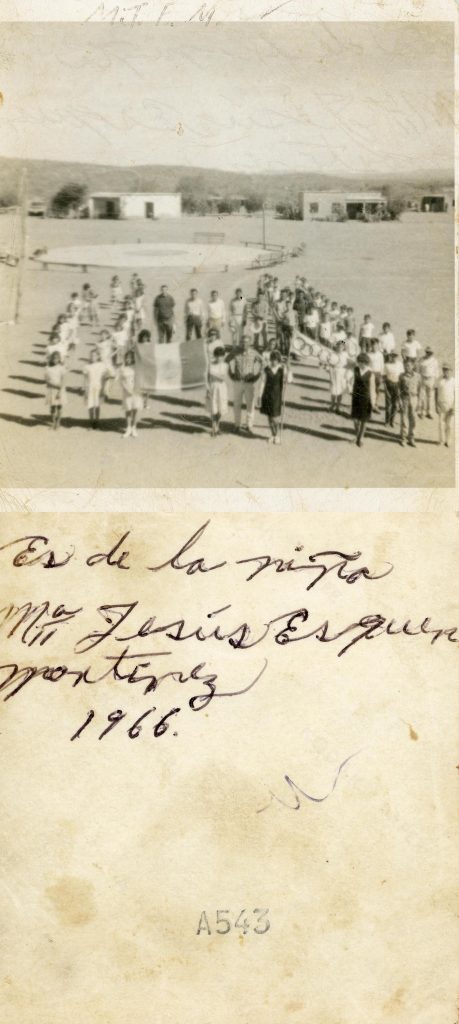 M. T. F. M.
Es de la niña
Ma Jesús Esquer
Martínez
1966.
A543